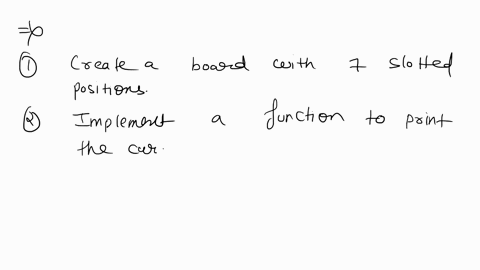 ⇒
① Create a board with 7 slotted
positions.
② Implement a function to print
the cur